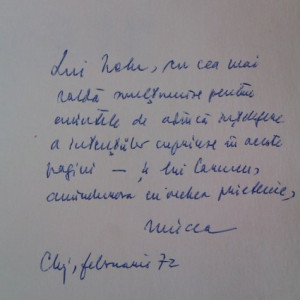 Lui Radu, cu cea mai
caldă mulțumire pentru
cuvintele de adâncă înțelegere
a intențiilor cuprinse în aceste
pagini — și lui Carmen,
amândurora cu vechea prietenie,
Mircea
Cluj, februarie 72